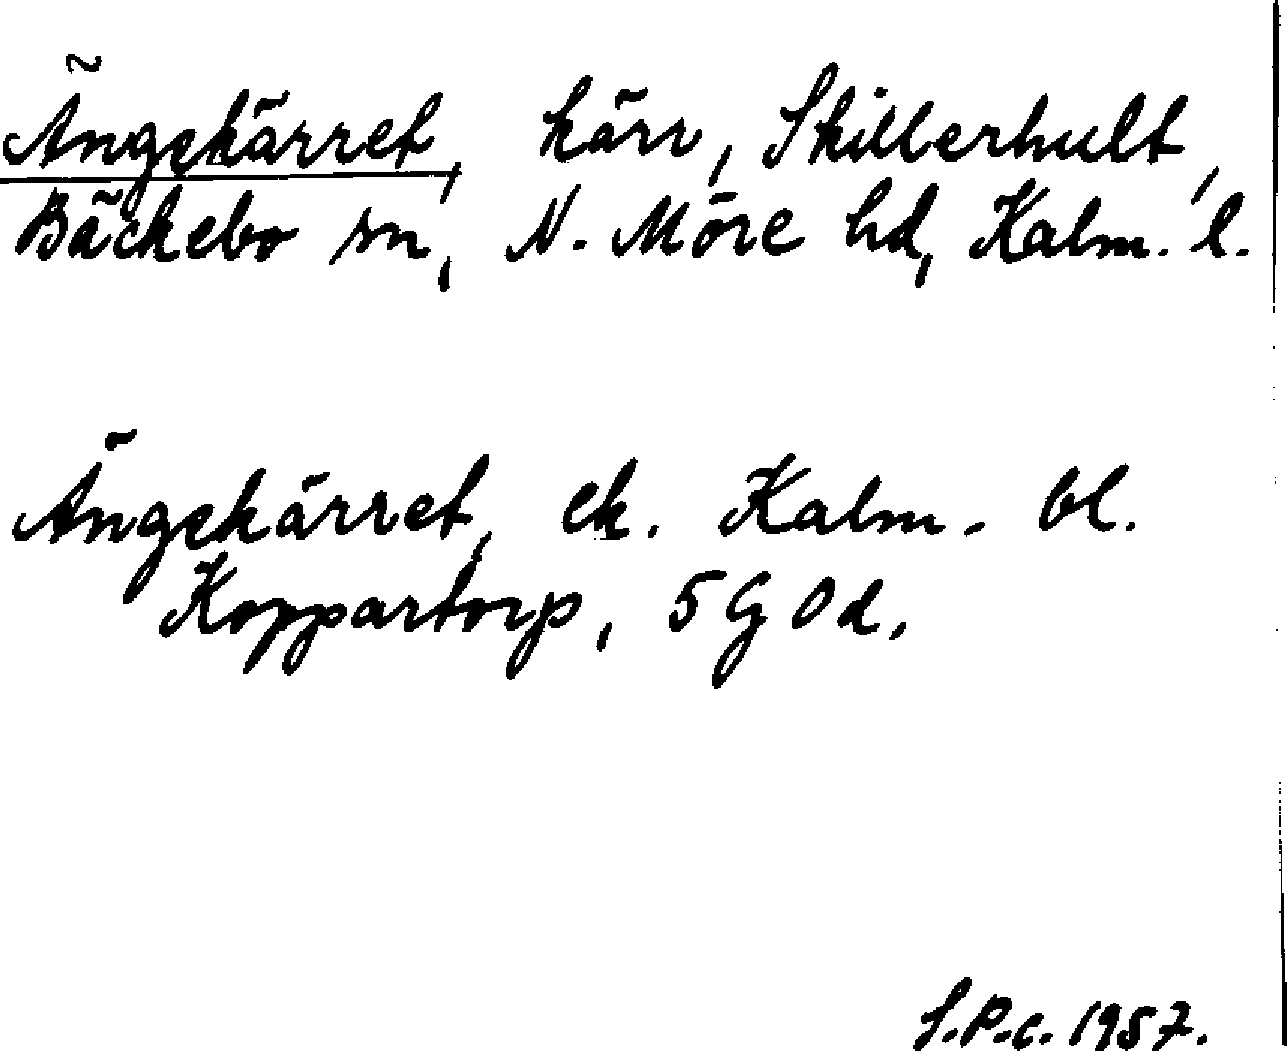 Ängekärret, kärr, Skillerhult,
Bäckebo sn, N. Möre hd, Kalm. l.
Ängekärret, ek. Kalm. bl.
Koppartorp, 5 G 0 d.
S.P.c. 1957.